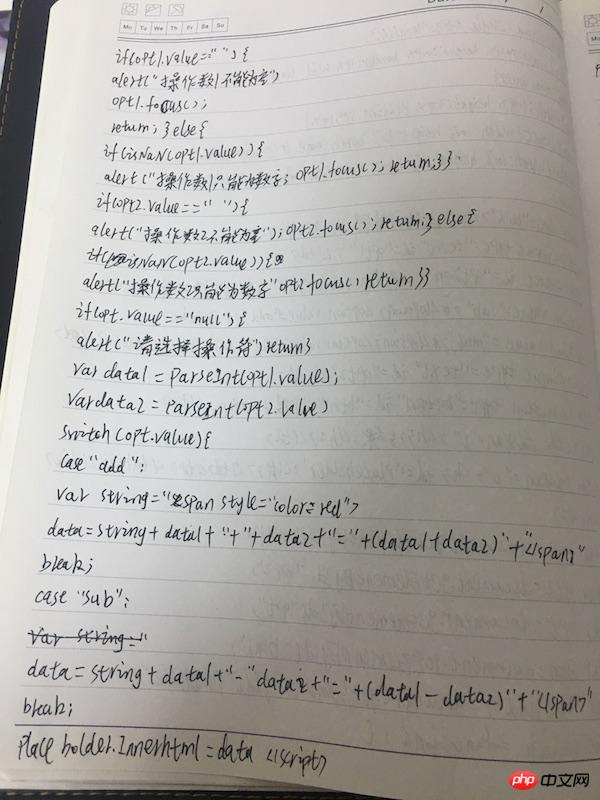 Mo Tu We Th Fr Sa Su
if(opt1.value==" "){
alert("操作数1不能为空")
opt1.focus();
return;}else{
if(isNaN(opt1.value)){
alert("操作数1只能为数字; opt1.focus(); return;}}
if(opt2.value==" "){
alert("操作数2不能为空");opt2.focus();return;}else{
if(isNaN(opt2.value)){
alert("操作数2只能为数字"opt2.focus(; return}}
if(opt.value=="null"){
alert("请选择操作符")return}
var data1=parseInt(opt1.value);
var data2=parseInt(opt2.value)
switch(opt.value){
case "add":
var string="<span style="color=red">
data=string+data1+"+"+data2+"="+(data1+data2)"+"</span>"
break;
case "sub":
var string="
data=string+data1+"-"data2+"="+(data1-data2)"+"</span>"
break;
placeholder.Innerhtml=data </script>
php 中文网